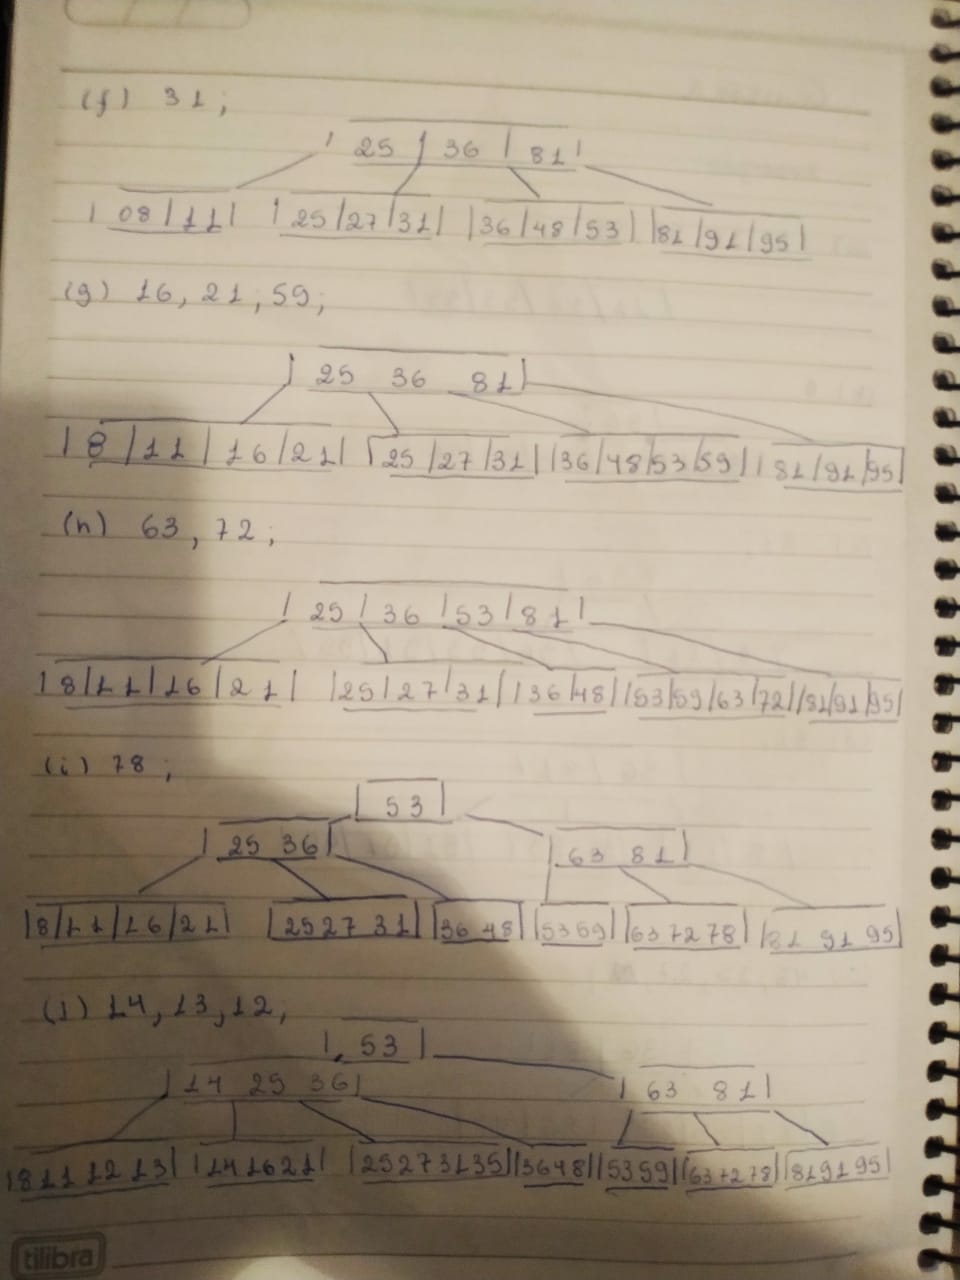 (f) 31;
| 25 | 36 | 81 |
| 08 | 11 | | 25 | 27 | 31 | | 36 | 48 | 53 | | 81 | 91 | 95 |
(g) 16, 21, 59;
| 25 36 81 |
| 8 | 11 | 16 | 21 | | 25 | 27 | 31 | | 36 | 48 | 53 | 59 | | 81 | 91 | 95 |
(h) 63, 72;
| 25 | 36 | 53 | 81 |
| 8 | 11 | 16 | 21 | | 25 | 27 | 31 | | 36 | 48 | | 53 | 59 | 63 | 72 | | 81 | 91 | 95 |
(i) 78;
| 53 |
| 25 36 | | 63 81 |
| 8 | 11 | 16 | 21 | | 25 27 31 | | 36 48 | | 53 59 | | 63 72 78 | | 81 91 95 |
(j) 14, 13, 12;
| 53 |
| 14 25 36 | | 63 81 |
| 8 11 12 13 | | 14 16 21 | | 25 27 31 35 | | 36 48 | | 53 59 | | 63 72 78 | | 81 91 95 |
tilibra